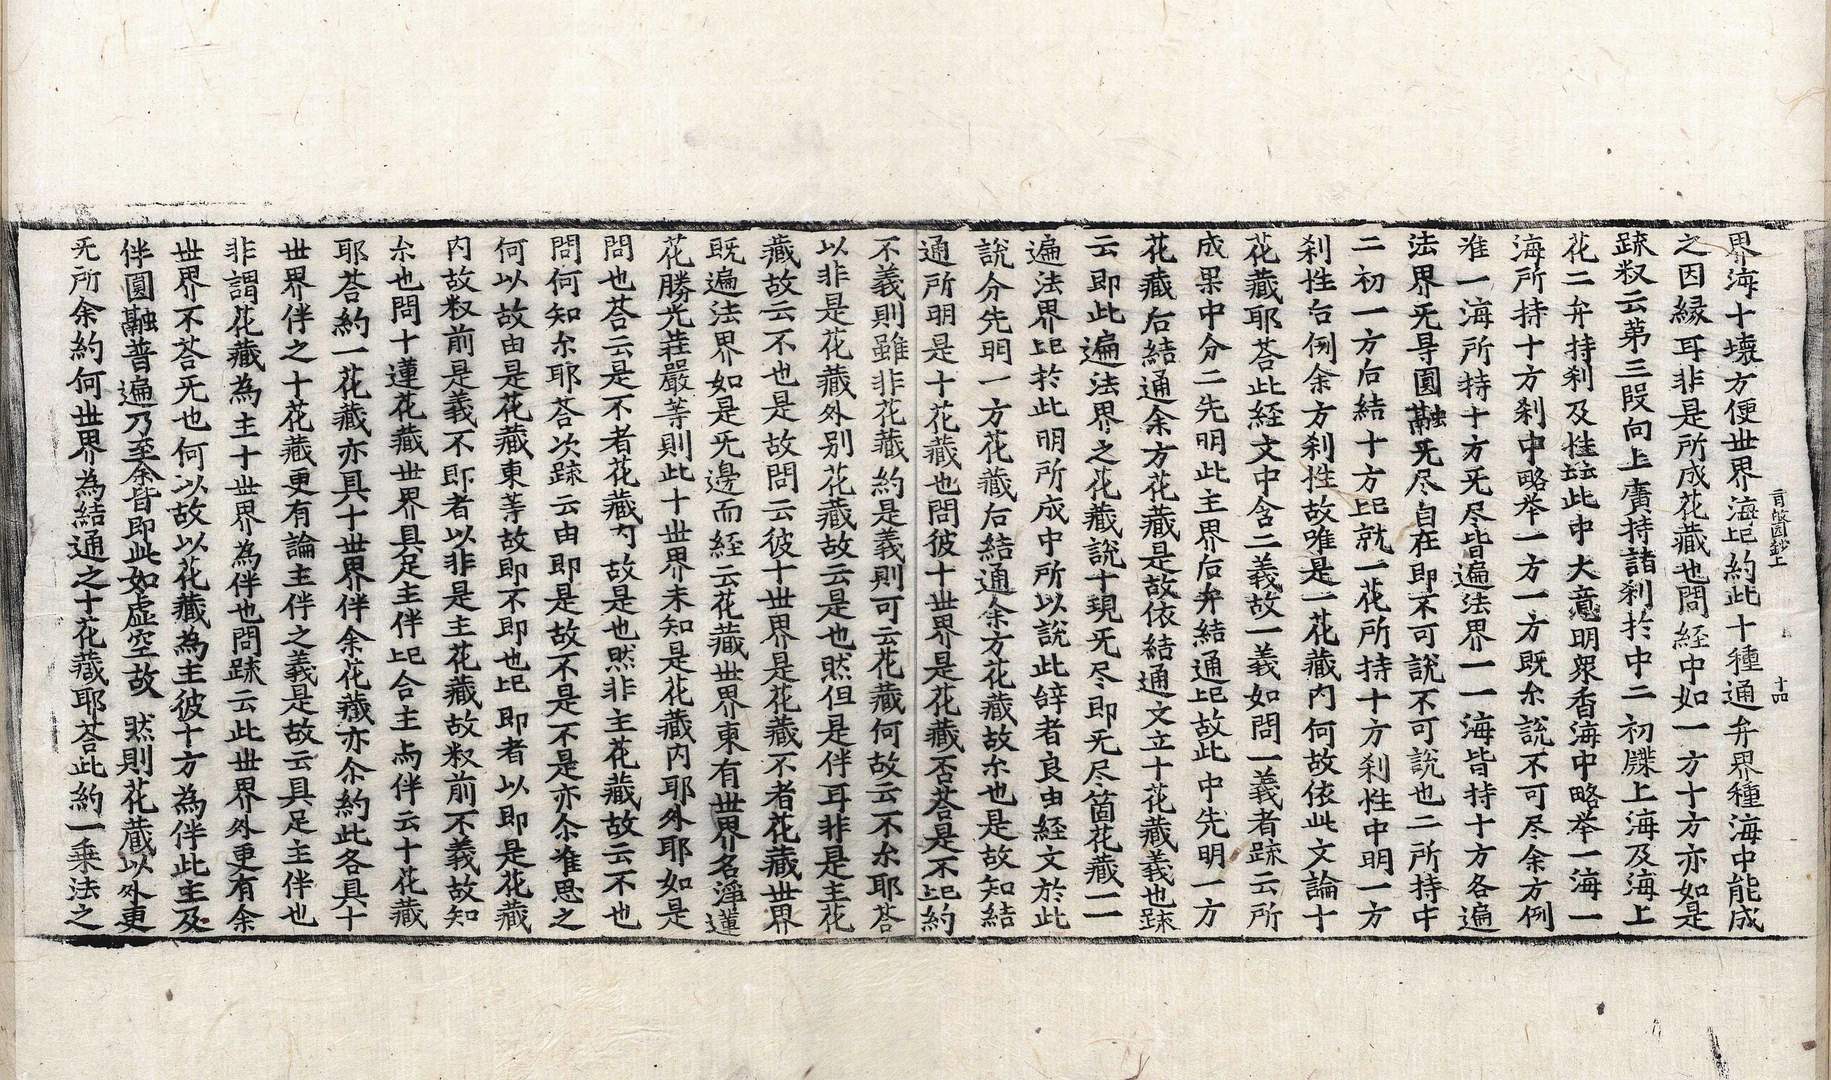 界海十壞方便世界海记約此十種通弁界種海中能成
之因縁耳非是所成花藏也問経中如一方十方亦如是
䟽釈云第三叚向上廣持諸刹扵中二初牒上海及海上
花二弁持刹及挂䟦此中大意明衆香海中略举一海一
海所持十方刹中略举一方一方既尒說不可尽余方例
准一海所持十方旡尽皆遍法界一一海皆持十方各遍
法界旡导圓融旡尽自在即不可說不可說也二所持中
二初一方后結十方记就一花所持十方刹性中明一方
刹性台例余方刹性故唯是一花藏内何故依此文論十
花藏耶荅此経文中含二義故一義如問一義者䟽云所
成果中分二先明此主界后弁結通记故此中先明一方
花藏后結通余方花藏是故依結通文立十花藏義也䟽
云即此遍法界之花藏說十現旡尽即旡尽箇花藏一一
遍法界记扵此明所成中所以說此辝者良由経文於此
說分先明一方花藏后結通余方花藏故尒也是故知結
通所明是十花藏也問彼十世界是花藏否荅是不记約
不義則雖非花藏約是義則可云花藏何故云不尒耶荅
以非是花藏外别花藏故云是也然但是伴耳非是主花
藏故云不也是故問云彼十世界是花藏不者花藏世界
既遍法界如是旡邊而経云花藏世界東有世界名淨蓮
花勝光莊嚴等則此十世界未知是花藏内耶外耶如是
問也荅云是不者花藏内故是也然非主花藏故云不也
問何知尒耶荅次䟽云由即是故不是不是亦尒准思之
何以故由是花藏東等故即不即也记即者以即是花藏
内故釈前是義不即者以非是主花藏故釈前不義故知
尒也問十蓮花藏世界具足主伴记合主為伴云十花藏
耶荅約一花藏亦具十世界伴余花藏亦尒約此各具十
世界伴之十花藏更有論主伴之義是故云具足主伴也
非謂花藏為主十世界為伴也問䟽云此世界外更有余
世界不荅旡也何以故以花藏為主彼十方為伴此主及
伴圓融普遍乃至余皆即此如虛空故 然則花藏以外更
旡所余約何世界為結通之十花藏耶荅此約一乗法之